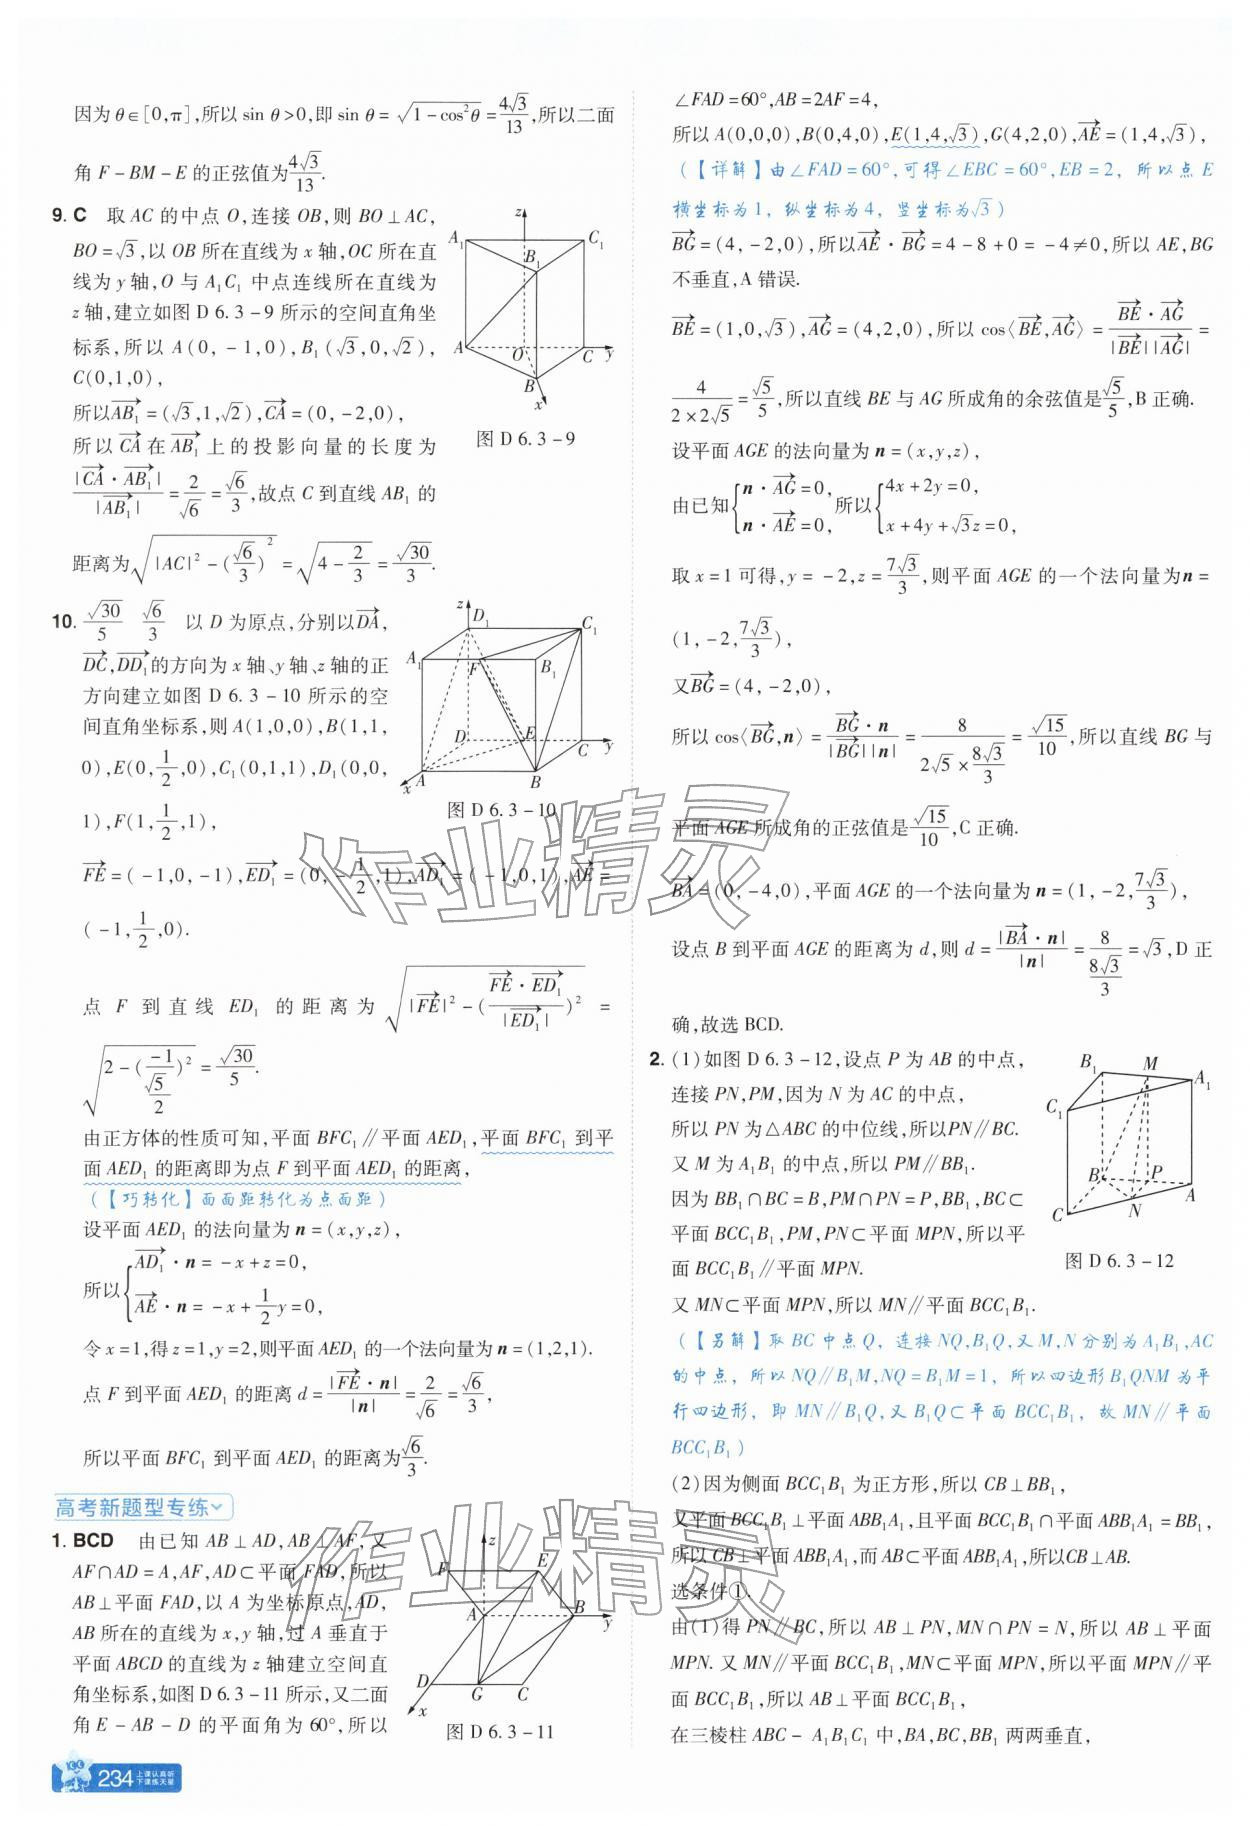 因为θ∈[0,π],所以 sin θ>0,即 sin θ=√(1-cos²θ)=4√3/13,所以二面
角 F-BM-E 的正弦值为4√3/13.
9. C 取 AC 的中点 O,连接 OB,则 BO⊥AC,
BO=√3,以 OB 所在直线为 x 轴,OC 所在直
线为 y 轴,O 与 A₁C₁ 中点连线所在直线为
z 轴,建立如图 D 6.3-9 所示的空间直角坐
标系,所以 A(0,-1,0),B₁(√3,0,√2),
C(0,1,0),
所以AB₁→=(√3,1,√2),CA→=(0,-2,0),
所以 CA→ 在 AB₁→ 上的投影向量的长度为
|CA→·AB₁→|/|AB₁→|=2/√6=√6/3,故点 C 到直线 AB₁ 的
距离为√(|AC|²-(√6/3)²)=√(4-2/3)=√30/3.
z
A₁
C₁
B₁
A
O
C
y
B
x
图 D 6.3-9
10. √30/5 √6/3 以 D 为原点,分别以DA→,
DC→,DD₁→的方向为 x 轴、y 轴、z 轴的正
方向建立如图 D 6.3-10 所示的空
间直角坐标系,则 A(1,0,0),B(1,1,
0),E(0,1/2,0),C₁(0,1,1),D₁(0,0,
1),F(1,1/2,1),
z
D₁
C₁
A₁
F
B₁
D
E
C
y
A
B
x
图 D 6.3-10
FE→=(-1,0,-1),ED₁→=(0,-1/2,1),AD₁→=(-1,0,1),AE→=
(-1,1/2,0).
点 F 到直线 ED₁ 的距离为√(|FE→|²-(FE→·ED₁→/|ED₁→|)²)=
√(2-(-1/(√5/2))²)=√30/5.
由正方体的性质可知,平面 BFC₁∥平面 AED₁,平面 BFC₁ 到平
面 AED₁ 的距离即为点 F 到平面 AED₁ 的距离,
(【巧转化】面面距转化为点面距)
设平面 AED₁ 的法向量为 n=(x,y,z),
所以{AD₁→·n=-x+z=0,
AE→·n=-x+1/2y=0,
令 x=1,得 z=1,y=2,则平面 AED₁ 的一个法向量为 n=(1,2,1).
点 F 到平面 AED₁ 的距离 d=|FE→·n|/|n|=2/√6=√6/3,
所以平面 BFC₁ 到平面 AED₁ 的距离为√6/3.
高考新题型专练
1. BCD 由已知 AB⊥AD,AB⊥AF,又
AF∩AD=A,AF,AD⊂平面 FAD,所以
AB⊥平面 FAD,以 A 为坐标原点,AD,
AB 所在的直线为 x,y 轴,过 A 垂直于
平面 ABCD 的直线为 z 轴建立空间直
角坐标系,如图 D 6.3-11 所示,又二面
角 E-AB-D 的平面角为 60°,所以
z
F
E
A
B
y
D
G
C
x
图 D 6.3-11
∠FAD=60°,AB=2AF=4,
所以 A(0,0,0),B(0,4,0),E(1,4,√3),G(4,2,0),AE→=(1,4,√3),
(【详解】由∠FAD=60°,可得∠EBC=60°,EB=2,所以点 E
横坐标为1,纵坐标为4,竖坐标为√3)
BG→=(4,-2,0),所以AE→·BG→=4-8+0=-4≠0,所以 AE,BG
不垂直,A 错误.
BE→=(1,0,√3),AG→=(4,2,0),所以 cos⟨BE→,AG→⟩=BE→·AG→/|BE→||AG→|=
4/(2×2√5)=√5/5,所以直线 BE 与 AG 所成角的余弦值是√5/5,B 正确.
设平面 AGE 的法向量为 n=(x,y,z),
由已知{n·AG→=0, n·AE→=0, 所以{4x+2y=0, x+4y+√3z=0,
取 x=1 可得,y=-2,z=7√3/3,则平面 AGE 的一个法向量为n=
(1,-2,7√3/3),
又BG→=(4,-2,0),
所以 cos⟨BG→,n⟩=BG→·n/|BG→||n|=8/(2√5×8√3/3)=√15/10,所以直线 BG 与
平面 AGE 所成角的正弦值是√15/10,C 正确.
BA→=(0,-4,0),平面 AGE 的一个法向量为 n=(1,-2,7√3/3),
设点 B 到平面 AGE 的距离为 d,则 d=|BA→·n|/|n|=8/(8√3/3)=√3,D 正
确,故选 BCD.
2. (1)如图 D 6.3-12,设点 P 为 AB 的中点,
连接 PN,PM,因为 N 为 AC 的中点,
所以 PN 为△ABC 的中位线,所以PN∥BC.
又 M 为 A₁B₁ 的中点,所以 PM∥BB₁.
因为 BB₁∩BC=B,PM∩PN=P,BB₁,BC⊂
平面 BCC₁B₁,PM,PN⊂平面 MPN,所以平
面 BCC₁B₁∥平面 MPN.
又 MN⊂平面 MPN,所以 MN∥平面 BCC₁B₁.
B₁
M
A₁
C₁
B
P
A
C
N
图 D 6.3-12
(【另解】取 BC 中点 Q,连接 NQ,B₁Q,又 M,N 分别为 A₁B₁,AC
的中点,所以 NQ∥B₁M,NQ=B₁M=1,所以四边形 B₁QNM 为平
行四边形,即 MN∥B₁Q,又 B₁Q⊂平面 BCC₁B₁,故 MN∥平面
BCC₁B₁)
(2)因为侧面 BCC₁B₁ 为正方形,所以 CB⊥BB₁,
又平面 BCC₁B₁⊥平面 ABB₁A₁,且平面 BCC₁B₁∩平面 ABB₁A₁=BB₁,
所以 CB⊥平面 ABB₁A₁,而 AB⊂平面 ABB₁A₁,所以CB⊥AB.
选条件①.
由(1)得 PN∥BC,所以 AB⊥PN,MN∩PN=N,所以 AB⊥平面
MPN.又 MN∥平面 BCC₁B₁,MN⊂平面 MPN,所以平面 MPN∥平
面 BCC₁B₁,所以 AB⊥平面 BCC₁B₁,
在三棱柱 ABC-A₁B₁C₁ 中,BA,BC,BB₁ 两两垂直,
作业精灵
作业精灵
234
上课认真听
下课练天星